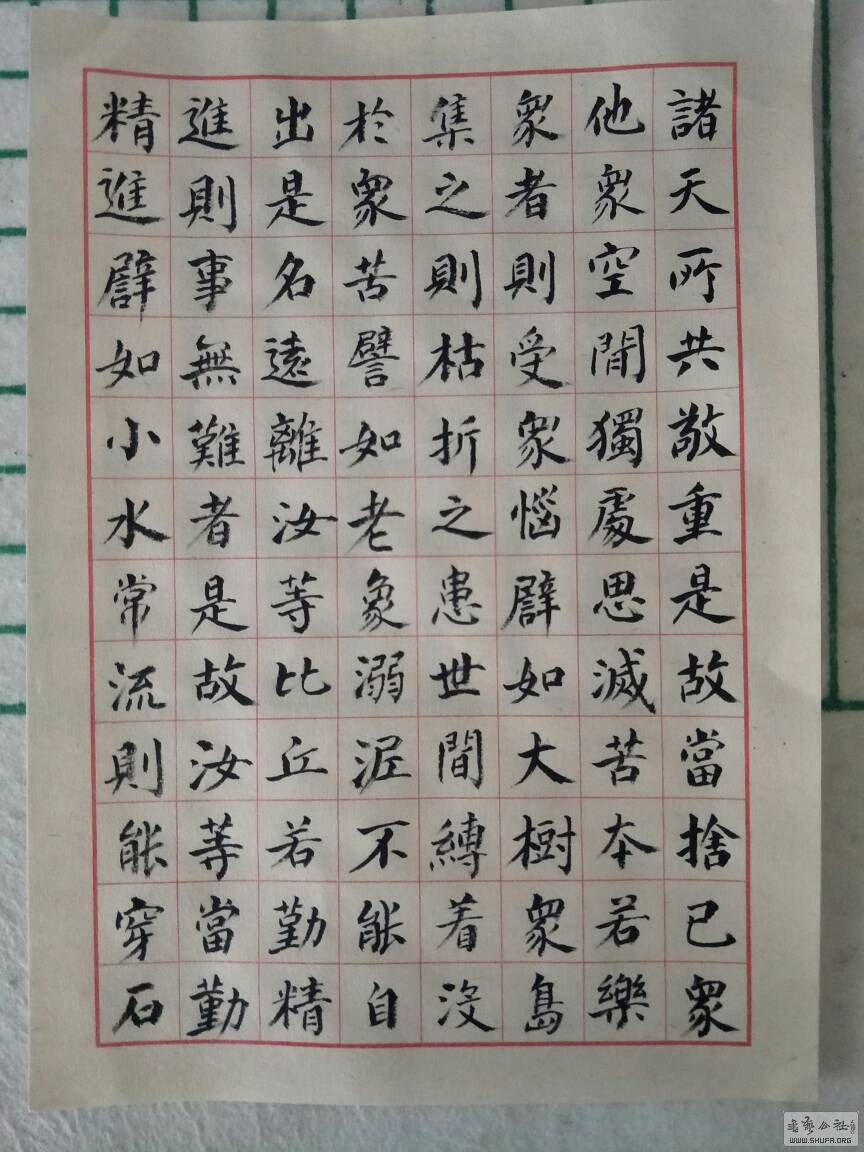 諸天所共敬重是故當捨已眾
他眾空閒獨處思滅苦本若樂
眾者則受眾惱譬如大樹眾島
集之則枯折之患世間縛着沒
於眾苦譬如老象溺泥不能自
出是名遠離汝等比丘若勤精
進則事無難者是故汝等當勤
精進譬如小水常流則能穿石
書藝公社
WWW.SHUFA.ORG